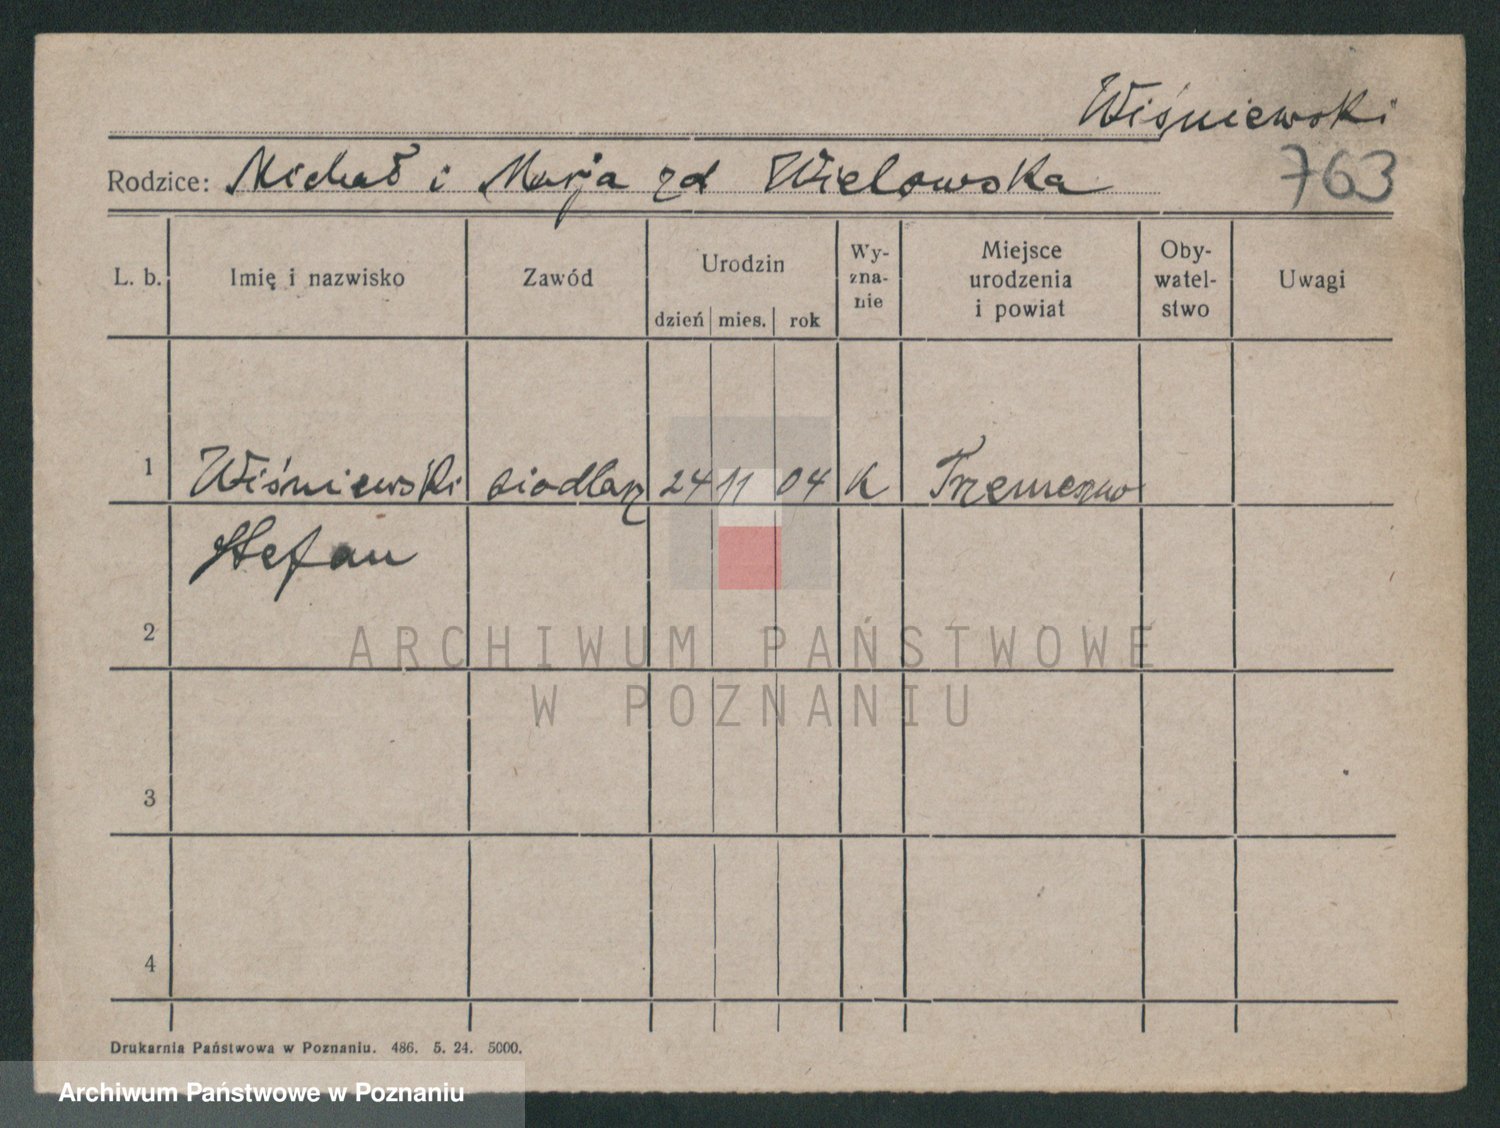 Wiśniewski
Rodzice: Michał i Marja zd Wielowska
763
L. b. Imię i nazwisko Zawód Urodzin dzień mies. rok Wy-zna-nie Miejsce urodzenia i powiat Oby-watel-stwo Uwagi
1 Wiśniewski siodlarz 24 11 04 k Trzemeszno
Stefan
2
ARCHIWUM PAŃSTWOWE
W POZNANIU
3
4
Drukarnia Państwowa w Poznaniu. 486. 5. 24. 5000.
Archiwum Państwowe w Poznaniu